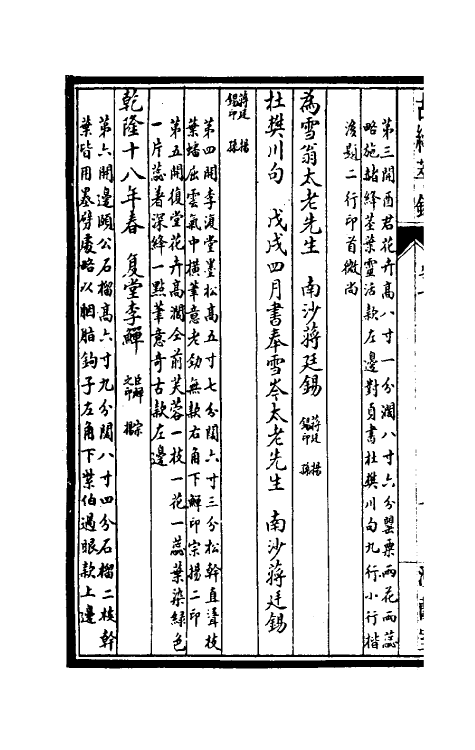 第三開酉君花卉高八寸一分濶八寸六分罌粟兩花兩蕊
略施赭絳莖葉靈活款左邊對頁書杜樊川句九行小行楷
後題二行印首微尚
為雪翁太老先生 南沙蔣廷錫 蔣廷錫印 揚孫
杜樊川句 戊戌四月書奉雪岑太老先生 南沙蔣廷錫
蔣廷錫印 揚孫
第四開李復堂墨松高五寸七分闊六寸三分松幹直聳枝
葉蟠屈雲氣中橫筆意老勁無款右角下鱓印宗揚二印
第五開復堂花卉高濶仝前芙蓉一枝一花一蕊葉染綠色
一片蕊著深絳一點筆意奇古款左邊
乾隆十八年春 復堂李鱓 臣鱓之印 宗揚
第六開邊頤公石榴高六寸九分闊八寸四分石榴二枝幹
葉皆用墨劈處略以胭脂鈎子左角下葉伯過眼款上邊